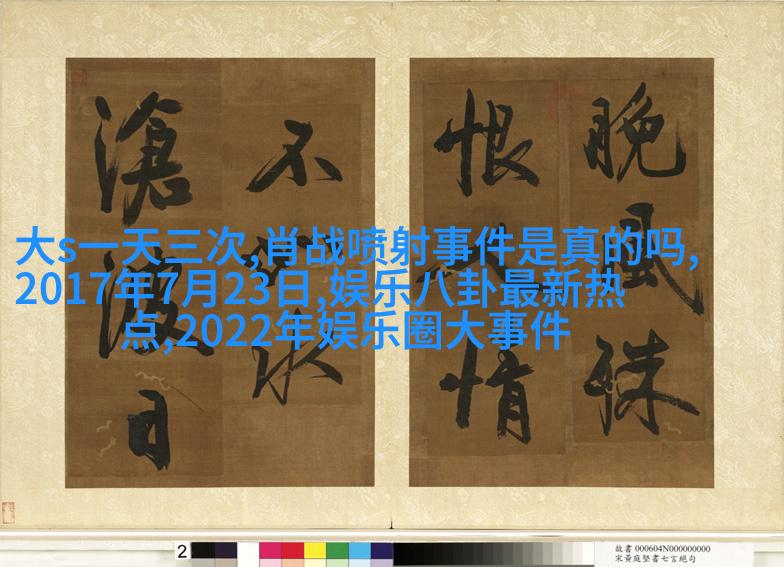 晚風殊
恨情
不水
滄波日
大s一天三次,肖战喷射事件是真的吗,
2017年7月23日,娱乐八卦最新热
点,2022年娱乐圈大事件
2
故書 000604N000000000
宋黃庭堅書七言絕句